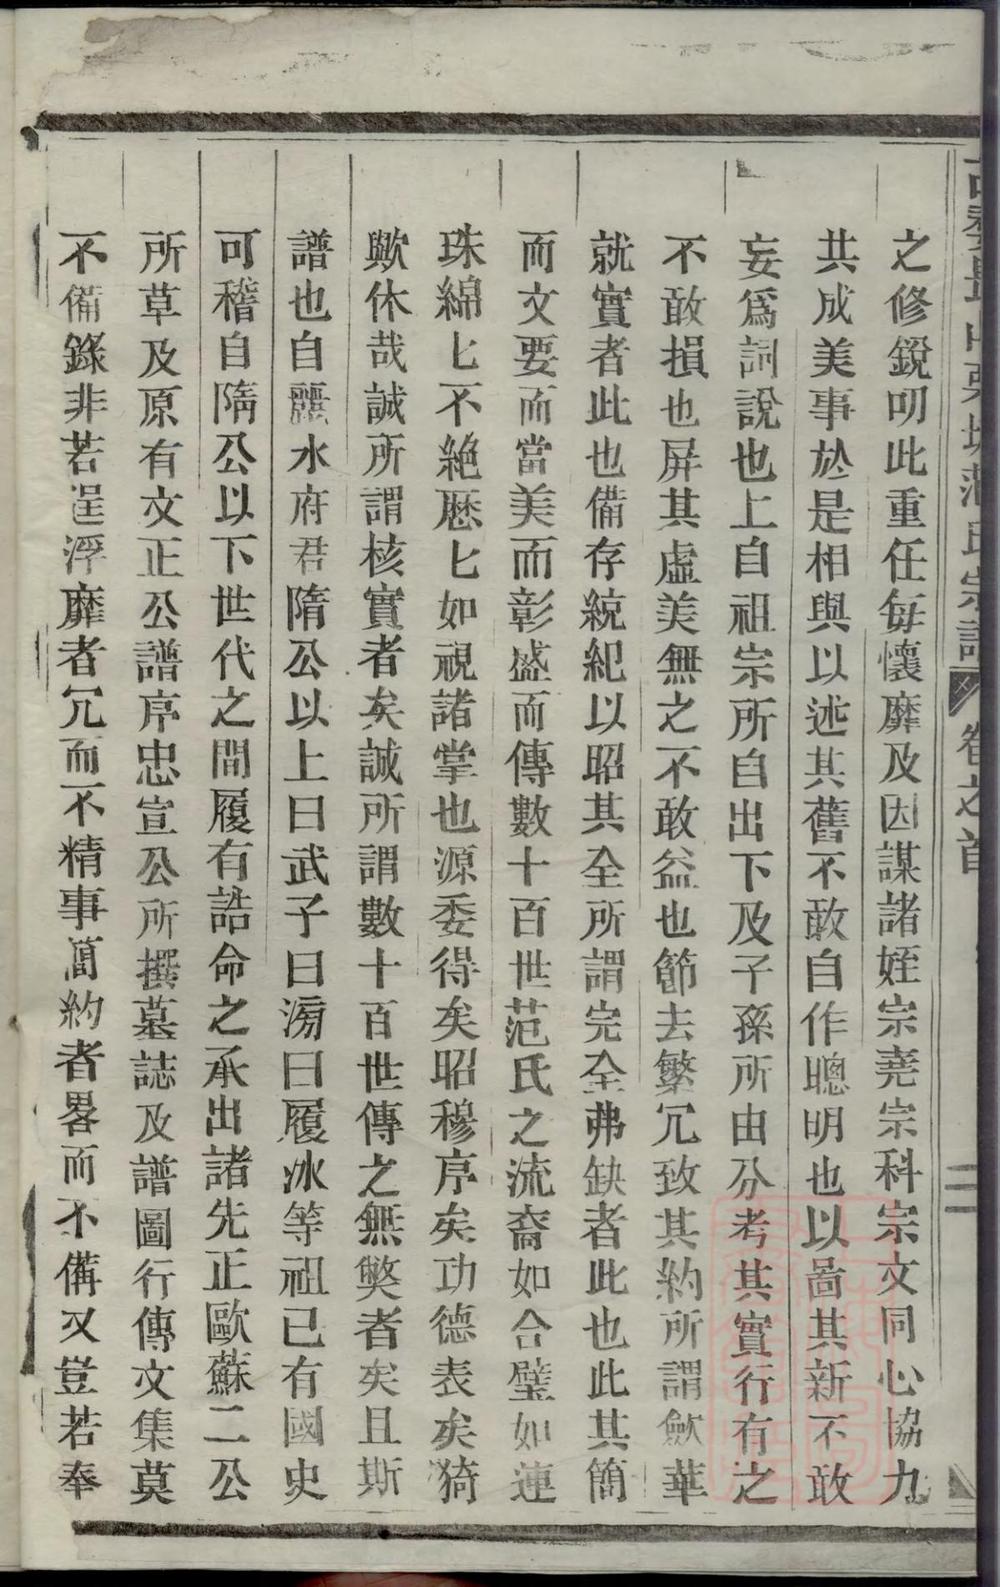 之修銳叨此重任每懷靡及因謀諸姪宗堯宗科宗文同心協九
共成美事於是相與以述其舊不敢自作聰明也以啚其新不敢
妄爲詞說也上自祖宗所自出下及子孫所由分考其實行有之
不敢損也屏其虛美無之不敢益也節去繁冗致其約所謂歛華
就實者此也備存統紀以昭其全所謂完全弗缺者此也此其簡
而文要而當美而彰盛而傳數十百世范氏之流裔如合璧如連
珠綿匕不絶歷匕如視諸掌也源委得矣昭穆序矣功德表矣猗
歟休哉誠所謂核實者矣誠所謂數十百世傳之無獘者矣且斯
譜也自麗水府君隋公以上曰武子曰滂曰履冰等祖已有國史
可稽自隋公以下世代之間履有誥命之承出諸先正歐蘇二公
所草及原有文正公譜序忠宣公所撰墓誌及譜圖行傳文集莫
不備錄非若逞浮靡者冗而不精事蕳約者畧而不備又豈若奉